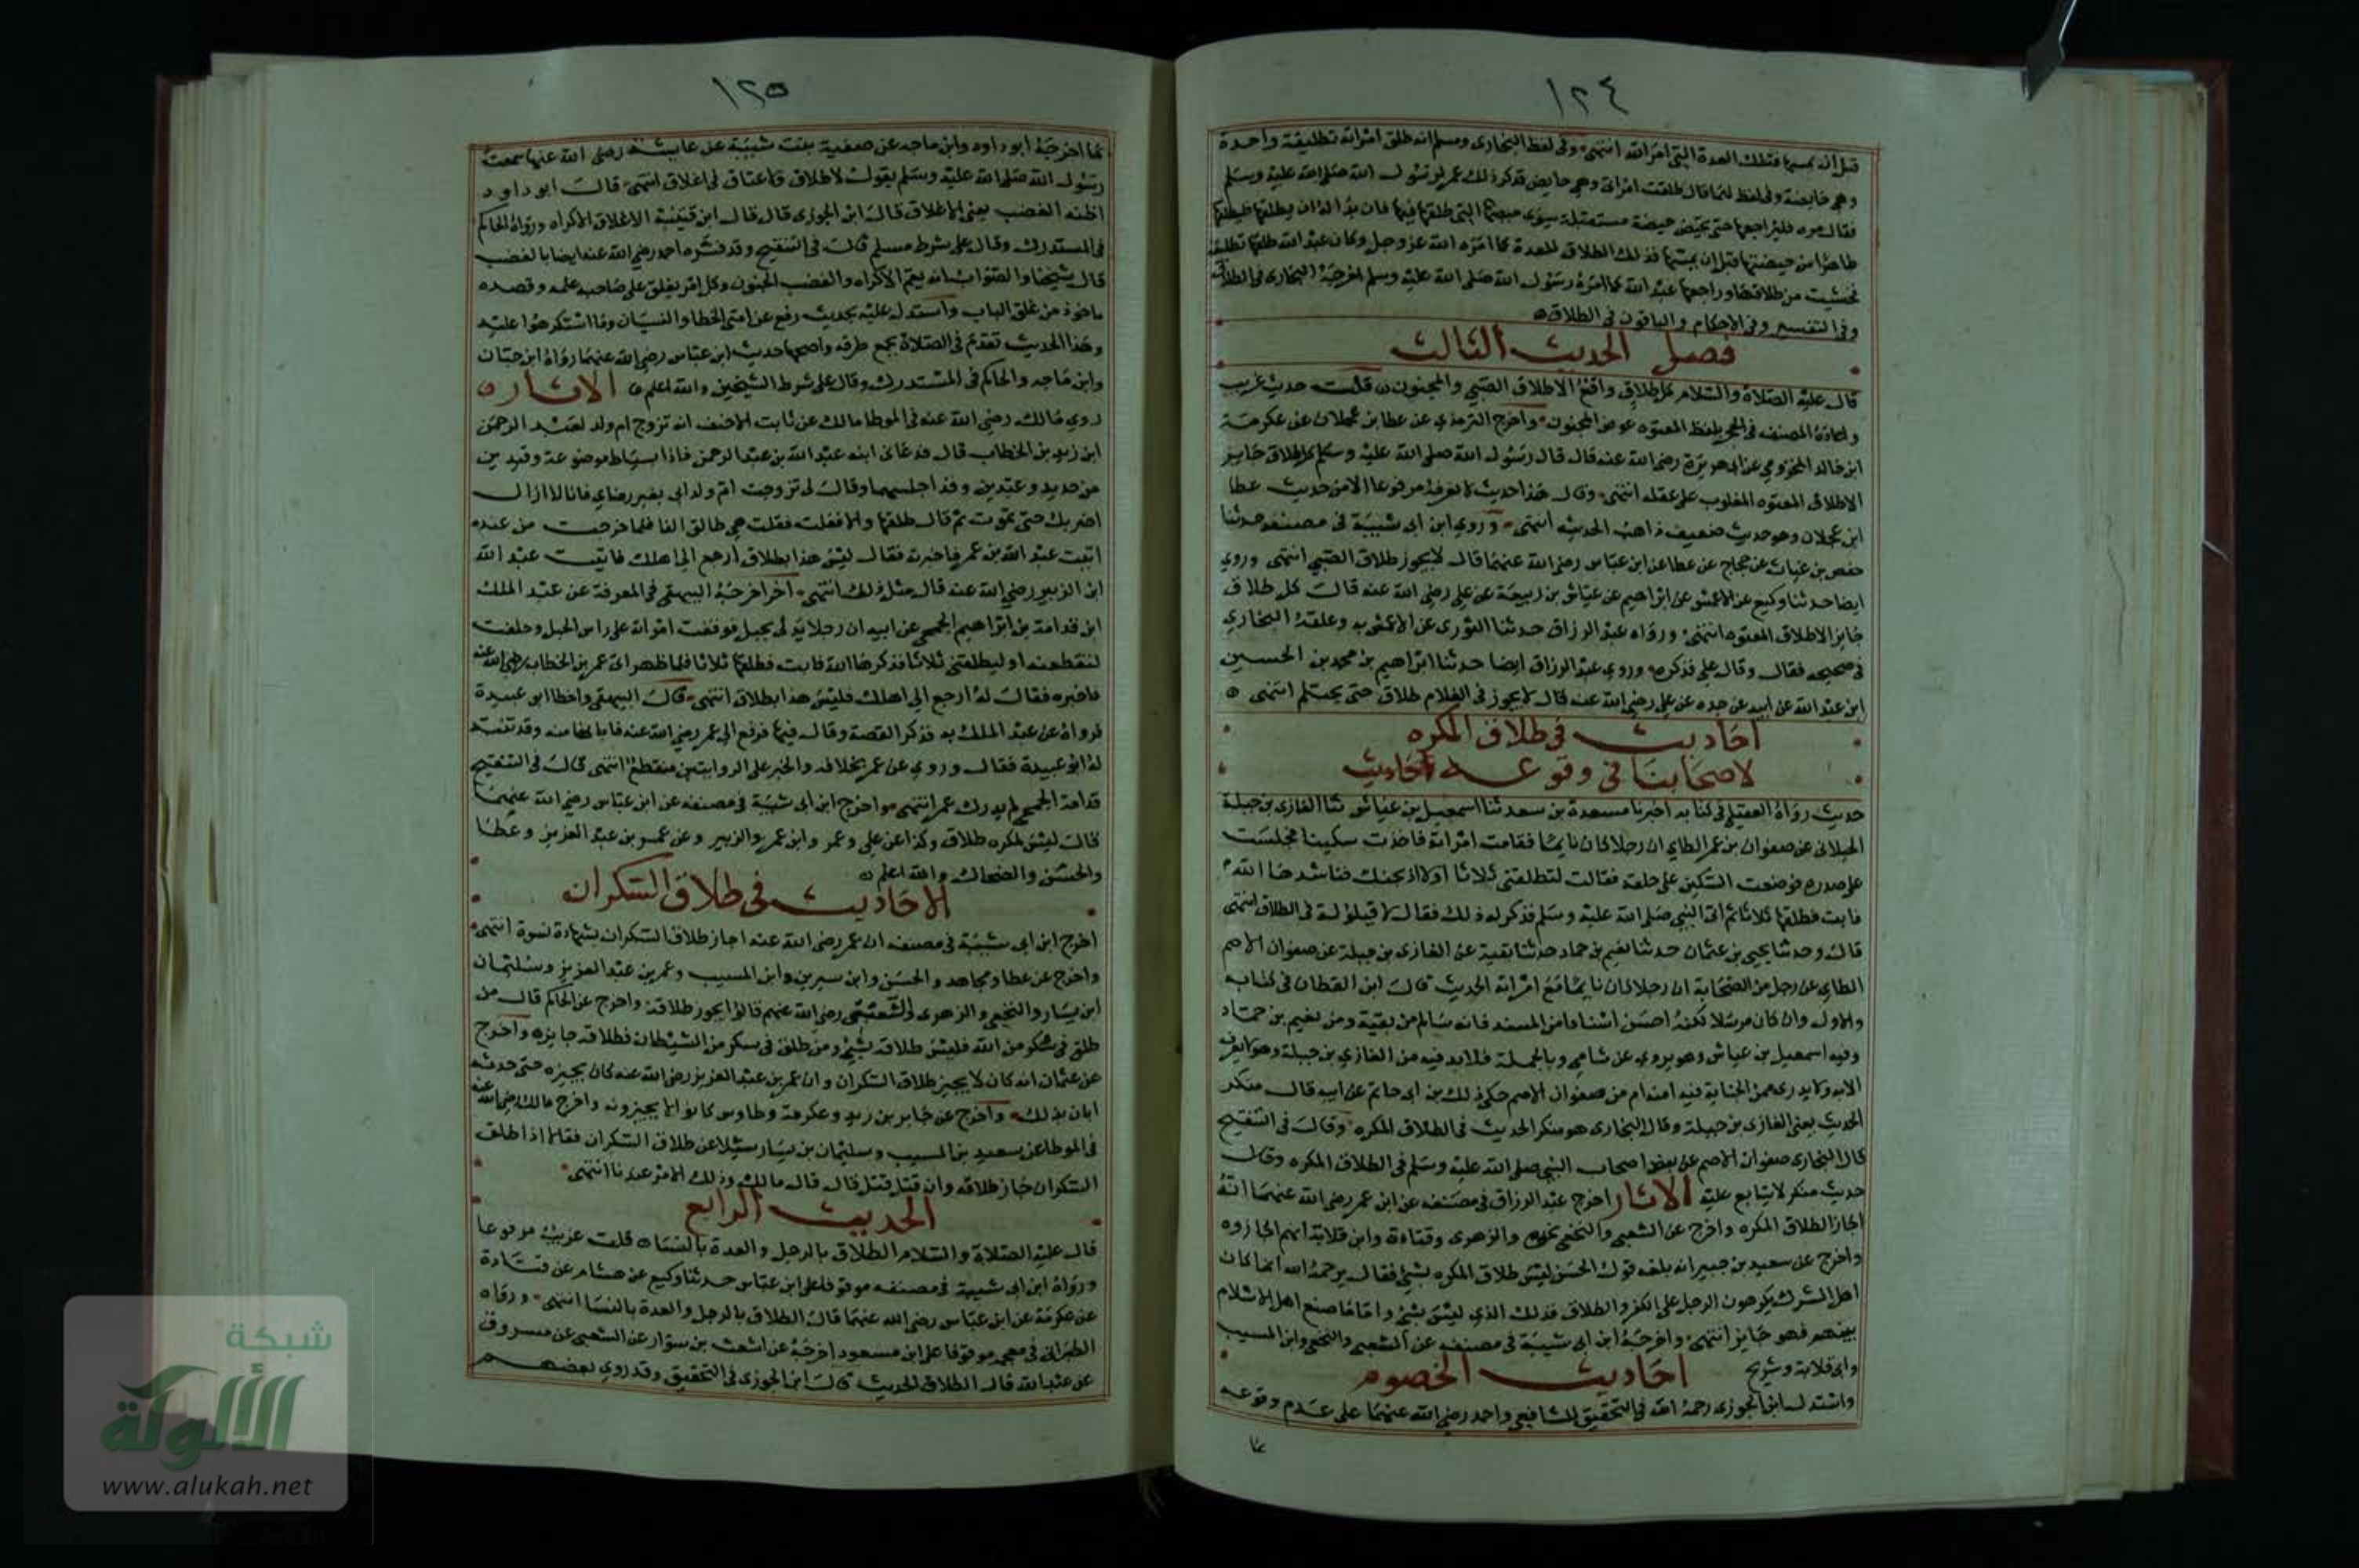 ١٢٤
قبل ان يمسها فتلك العدة التي امر الله انتهى وفي لفظ البخاري ومسلم انه طلق امراته تطليقة واحدة
وهي حايضة وفي لفظ لهما قال طلقت امراتي وهي حايض فذكر ذلك عمر لرسول الله صلى الله عليه وسلم
فقال مره فليراجعها حتى تحيض حيضة مستقبلة سوى حيضتها التي طلقها فيها فان بدا له ان يطلقها فليطلقها
طاهرا من حيضتها قبل ان يمسها فذلك الطلاق للعدة كما امره الله عز وجل وكان عبد الله طلقها تطليقة
فحسبت من طلاقها وراجعها عبد الله كما امره رسول الله صلى الله عليه وسلم اخرجه البخاري في الطلاق
وفي التفسير وفي الاحكام والباقون في الطلاق
فصل الحديث الثالث
قال عليه الصلاة والسلام كل طلاق واقع الا طلاق الصبي والمجنون قلت حديث غريب
واعاده المصنف في الحجر بلفظ المعتوه عوض المجنون واخرج الترمذي عن عطا بن عجلان عن عكرمة
ابن خالد المخزومي عن ابي هريرة رضي الله عنه قال قال رسول الله صلى الله عليه وسلم كل طلاق جايز
الا طلاق المعتوه المغلوب على عقله انتهى وقال هذا حديث لا نعرفه مرفوعا الا من حديث عطا
ابن عجلان وهو حديث ضعيف ذاهب الحديث انتهى وروى ابن ابي شيبة في مصنفه حدثنا
حفص بن غياث عن حجاج عن عطا عن ابن عباس رضي الله عنهما قال لا يجوز طلاق الصبي انتهى وروي
ايضا حدثنا وكيع عن الاعمش عن ابراهيم عن عباس بن ربيعة عن علي رضي الله عنه قال كل طلاق
جايز الا طلاق المعتوه انتهى ورواه عبد الرزاق حدثنا الثوري عن الاعمش به وعلقه البخاري
في صحيحه فقال وقال علي فذكره وروى عبد الرزاق ايضا حدثنا ابراهيم بن محمد بن الحسين
ابن عبد الله عن ابيه عن جده عن علي رضي الله عنه قال لا يجوز في الغلام طلاق حتى يحتلم انتهى
احاديث في طلاق المكره
لاصحابنا في وقوعه احاديث
حديث رواه العقيلي في كتابه اخبرنا مسعدة بن سعد ثنا اسمعيل بن عياش ثنا الغازي بن جبلة
الجبلاني عن صفوان بن عمر الطاي ان رجلا كان نايما فقامت امراته فاخذت سكينا فجلست
على صدره فوضعت السكين على حلقه فقالت لتطلقني ثلاثا او لاذبحنك فناشدها الله
فابت فطلقها ثلاثا ثم اتى النبي صلى الله عليه وسلم فذكر له ذلك فقال لا قيلولة في الطلاق انتهى
قال وحدثنا يحيى بن عثمان حدثنا نعيم بن حماد حدثنا بقية عن الغازي بن جبلة عن صفوان الاصم
الطاي عن رجل من الصحابة ان رجلا كان نايما مع امراته الحديث قال ابن القطان في كتابه
والاول وان كان مرسلا لكنه احسن اسنادا من المسند فانه سالم من بقية ومن نعيم بن حماد
وفيه اسمعيل بن عياش وهو يروي عن شامي وبالجملة فلا بد فيه من الغازي بن جبلة وهو لا يعرف
الا به ولا يدرى ممن الجناية فيه امنه ام من صفوان الاصم حكى ذلك بن ابي حاتم عن ابيه قال منكر
الحديث يعني الغازي بن جبلة وقال البخاري هو منكر الحديث في الطلاق المكره وقال في التنقيح
قال البخاري صفوان الاصم عن بعض اصحاب النبي صلى الله عليه وسلم في الطلاق المكره وقال
حديث منكر لا يتابع عليه الاثار اخرج عبد الرزاق في مصنفه عن ابن عمر رضي الله عنهما انه
اجاز الطلاق المكره واخرج عن الشعبي والنخعي والزهري وقتادة وابي قلابة انهم اجازوه
واخرج عن سعيد بن جبير انه بلغه قول الحسن ليس طلاق المكره بشي فقال يرحمه الله انما كان
اهل الشرك يكرهون الرجل على الكفر والطلاق فذلك الذي ليس بشي واما ما صنع اهل الاسلام
بينهم فهو جايز انتهى واخرجه ابن ابي شيبة في مصنفه عن الشعبي والنخعي وابن المسيب
وابي قلابة وشريح احاديث الخصوم
واستدل ابن الجوزي رحمه الله في التحقيق للشافعي واحمد رضي الله عنهما على عدم وقوعه
١٢٥
بما اخرجه ابو داود وابن ماجه عن صفية بنت شيبة عن عايشة رضي الله عنها سمعت
رسول الله صلى الله عليه وسلم يقول لا طلاق ولا عتاق في اغلاق انتهى قال ابو داود
اظنه الغضب يعني الاغلاق قال ابن الجوزي قال قال ابن قتيبة الاغلاق الاكراه ورواه الحاكم
في المستدرك وقال على شرط مسلم قال في التنقيح وقد فسره احمد رضي الله عنه ايضا بالغضب
قال شيخنا والصواب انه يعم الاكراه والغضب الجنون وكل امر يغلق على صاحبه علمه وقصده
ماخوذ من غلق الباب واستدل عليه بحديث رفع عن امتي الخطا والنسيان وما استكرهوا عليه
وهذا الحديث تقدم في الصلاة بجميع طرقه واصحها حديث ابن عباس رضي الله عنهما رواه ابن حبان
وابن ماجه والحاكم في المستدرك وقال على شرط الشيخين والله اعلم الاثار
روى مالك رضي الله عنه في الموطا مالك عن ثابت الاحنف انه تزوج ام ولد لعبد الرحمن
ابن زيد بن الخطاب قال فدعاني ابنه عبد الله بن عبد الرحمن فاذا بسياط موضوعة وقيدين
من حديد وعبدين وقد اجلسهما وقال لي تزوجت ام ولد ابي بغير رضاي فانا لا ازال
اضربك حتى تموت ثم قال طلقها والا فعلت فقلت هي طالق الفا فلما خرجت من عنده
اتيت عبد الله بن عمر فاخبرته فقال ليس هذا بطلاق ارجع الى اهلك فاتيت عبد الله
ابن الزبير رضي الله عنه قال مثل ذلك انتهى اخر اخرجه البيهقي في المعرفة عن عبد الملك
ابن قدامة بن ابراهيم الجمحي عن ابيه ان رجلا تدلى بحبل فوقفت امراته على راس الحبل وحلفت
لتقطعنه او ليطلقني ثلاثا فذكرها الله فابت فطلقها ثلاثا فلما ظهر اتى عمر بن الخطاب رضي الله عنه
فاخبره فقال له ارجع الى اهلك فليس هذا بطلاق انتهى قال البيهقي واخطا ابو عبيدة
فرواه عن عبد الملك به فذكر القصة وقال فيها فرفع الى عمر رضي الله عنه فابانها منه وقد تنبه
له ابو عبيدة فقال وروي عن عمر بخلافه والخبر على الروايتين منقطع انتهى قال في التنقيح
قدامة الجمحي لم يدرك عمر انتهى واخرج ابن ابي شيبة في مصنفه عن ابن عباس رضي الله عنهما
قال ليس لمكره طلاق وكذا عن علي وعمر وابن عمر والزبير وعن عمر بن عبد العزيز وعطا
والحسن والضحاك والله اعلم
الاحاديث في طلاق السكران
اخرج ابن ابي شيبة في مصنفه ان عمر رضي الله عنه اجاز طلاق السكران بشهادة نسوة انتهى
واخرج عن عطا ومجاهد والحسن وابن سيرين وابن المسيب وعمر بن عبد العزيز وسليمان
ابن يسار والنخعي والزهري والشعبي رضي الله عنهم قالوا يجوز طلاقه واخرج عن الحاكم قال من
طلق في سكر من الله فليس طلاقه بشي ومن طلق في سكر من الشيطان فطلاقه جايزه واخرج
عن عثمان انه كان لا يجيز طلاق السكران وان عمر بن عبد العزيز رضي الله عنه كان يجيزه حتى حدثه
ابان بذلك واخرج عن جابر بن زيد وعكرمة وطاوس كانوا لا يجيزونه واخرج مالك رضي الله عنه
في الموطا عن سعيد بن المسيب وسليمان بن يسار سئلا عن طلاق السكران فقالا اذا طلق
السكران جاز طلاقه وان قتل قتل قال قال مالك وذلك الامر عندنا انتهى
الحديث الرابع
قال عليه الصلاة والسلام الطلاق بالرجل والعدة بالنساء قلت غريب مرفوعا
ورواه ابن ابي شيبة في مصنفه موقوفا على ابن عباس حدثنا وكيع عن هشام عن قتادة
عن عكرمة عن ابن عباس رضي الله عنهما قال الطلاق بالرجل والعدة بالنسا انتهى ورواه
الطبراني في معجمه موقوفا على ابن مسعود اخرجه عن اشعث بن سوار عن الشعبي عن مسروق
عن عبد الله قال الطلاق الحديث قال ابن الجوزي في التحقيق وقد روي بعضهم
شبكة
الألوكة
www.alukah.net